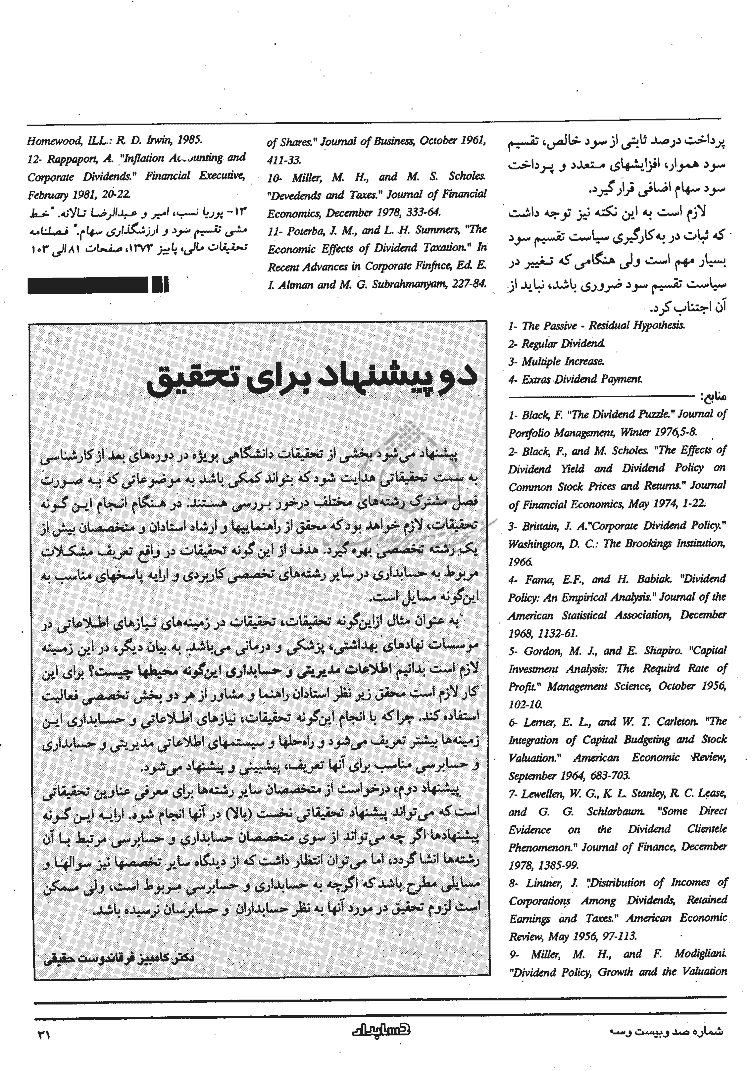 پرداخت درصد ثابتی از سود خالص، تقسیم
سود هموار، افزایشهای متعدد و پرداخت
سود سهام اضافی قرار گیرد.
لازم است به این نکته نیز توجه داشت
که ثبات در به‌کارگیری سیاست تقسیم سود
بسیار مهم است ولی هنگامی که تغییر در
سیاست تقسیم سود ضروری باشد، نباید از
آن اجتناب کرد.
1- The Passive - Residual Hypothesis.
2- Regular Dividend.
3- Multiple Increase.
4- Extras Dividend Payment.
منابع:
1- Black, F. "The Dividend Puzzle." Journal of
Portfolio Management, Winter 1976,5-8.
2- Black, F., and M. Scholes. "The Effects of
Dividend Yield and Dividend Policy on
Common Stock Prices and Returns." Journal
of Financial Economics, May 1974, 1-22.
3- Brittain, J. A."Corporate Dividend Policy."
Washington, D. C.: The Brookings Institution,
1966.
4- Fama, E.F., and H. Babiak. "Dividend
Policy: An Empirical Analysis." Journal of the
American Statistical Association, December
1968, 1132-61.
5- Gordon, M. J., and E. Shapiro. "Capital
Investment Analysis: The Requird Rate of
Profit." Management Science, October 1956,
102-10.
6- Lerner, E. L., and W. T. Carleton. "The
Integration of Capital Budgeting and Stock
Valuation." American Economic Review,
September 1964, 683-703.
7- Lewellen, W. G., K. L. Stanley, R. C. Lease,
and G. G. Schlarbaum. "Some Direct
Evidence on the Dividend Clientele
Phenomenon." Journal of Finance, December
1978, 1385-99.
8- Lintner, J. "Distribution of Incomes of
Corporations Among Dividends, Retained
Earnings and Taxes." American Economic
Review, May 1956, 97-113.
9- Miller, M. H., and F. Modigliani.
"Dividend Policy, Growth and the Valuation
of Shares." Journal of Business, October 1961,
411-33.
10- Miller, M. H., and M. S. Scholes.
"Devedends and Taxes." Journal of Financial
Economics, December 1978, 333-64.
11- Poterba, J. M., and L. H. Summers, "The
Economic Effects of Dividend Taxation." In
Recent Advances in Corporate Finfnce, Ed. E.
I. Altman and M. G. Subrahmanyam, 227-84.
Homewood, ILL.: R. D. Irwin, 1985.
12- Rappaport, A. "Inflation Accounting and
Corporate Dividends." Financial Executive,
February 1981, 20-22.
۱۳- پوریا نسب، امیر و عبدالرضا تالانه. "خط
مشی تقسیم سود و ارزشگذاری سهام." فصلنامه
تحقیقات مالی، پاییز ۱۳۷۳، صفحات ۸۱ الی ۱۰۳
دو پیشنهاد برای تحقیق
پیشنهاد می‌شود بخشی از تحقیقات دانشگاهی بویژه در دوره‌های بعد از کارشناسی
به سمت تحقیقاتی هدایت شود که بتواند کمکی باشد به موضوعاتی که به صورت
فصل مشترک رشته‌های مختلف درخور بررسی هستند. در هنگام انجام این گونه
تحقیقات، لازم خواهد بود که محقق از راهنماییها و ارشاد استادان و متخصصان بیش از
یک رشته تخصصی بهره گیرد. هدف از این‌گونه تحقیقات در واقع تعریف مشکلات
مربوط به حسابداری در سایر رشته‌های تخصصی کاربردی و ارایه پاسخهای مناسب به
این‌گونه مسایل است.
به عنوان مثال ازاین‌گونه تحقیقات، تحقیقات در زمینه‌های نیازهای اطلاعاتی در
موسسات نهادهای بهداشتی، پزشکی و درمانی می‌باشد. به بیان دیگر، در این زمینه
لازم است بدانیم اطلاعات مدیریتی و حسابداری این‌گونه محیطها چیست؟ برای این
کار لازم است محقق زیر نظر استادان راهنما و مشاور از هر دو بخش تخصصی فعالیت
استفاده کند. چرا که با انجام این‌گونه تحقیقات، نیازهای اطلاعاتی و حسابداری این
زمینه‌ها بیشتر تعریف می‌شود و راه‌حلها و سیستمهای اطلاعاتی مدیریتی و حسابداری
و حسابرسی مناسب برای آنها تعریف، پیشبینی و پیشنهاد می‌شود.
پیشنهاد دوم، درخواست از متخصصان سایر رشته‌ها برای معرفی عناوین تحقیقاتی
است که می‌تواند پیشنهاد تحقیقاتی نخست (بالا) در آنها انجام شود. ارایه این گونه
پیشنهادها اگر چه می‌تواند از سوی متخصصان حسابداری و حسابرسی مرتبط با آن
رشته‌ها انشا گردد، اما می‌توان انتظار داشت که از دیدگاه سایر تخصصها نیز سوالها و
مسایلی مطرح باشد که اگرچه به حسابداری و حسابرسی مربوط است، ولی ممکن
است لزوم تحقیق در مورد آنها به نظر حسابداران و حسابرسان نرسیده باشد.
دکتر کامبیز فرقاندوست حقیقی
شماره صد و بیست و سه
حسابدار
۳۱